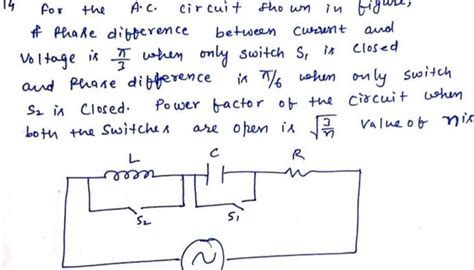 14 For the A.C. circuit shown in figure,
if Phase difference between current and
Voltage is π/3 when only switch S₁ is closed
and Phase difference is π/6 when only switch
S₂ is closed. Power factor of the circuit when
both the switches are open is √(3/n) value of n is
L C R
S₂ S₁